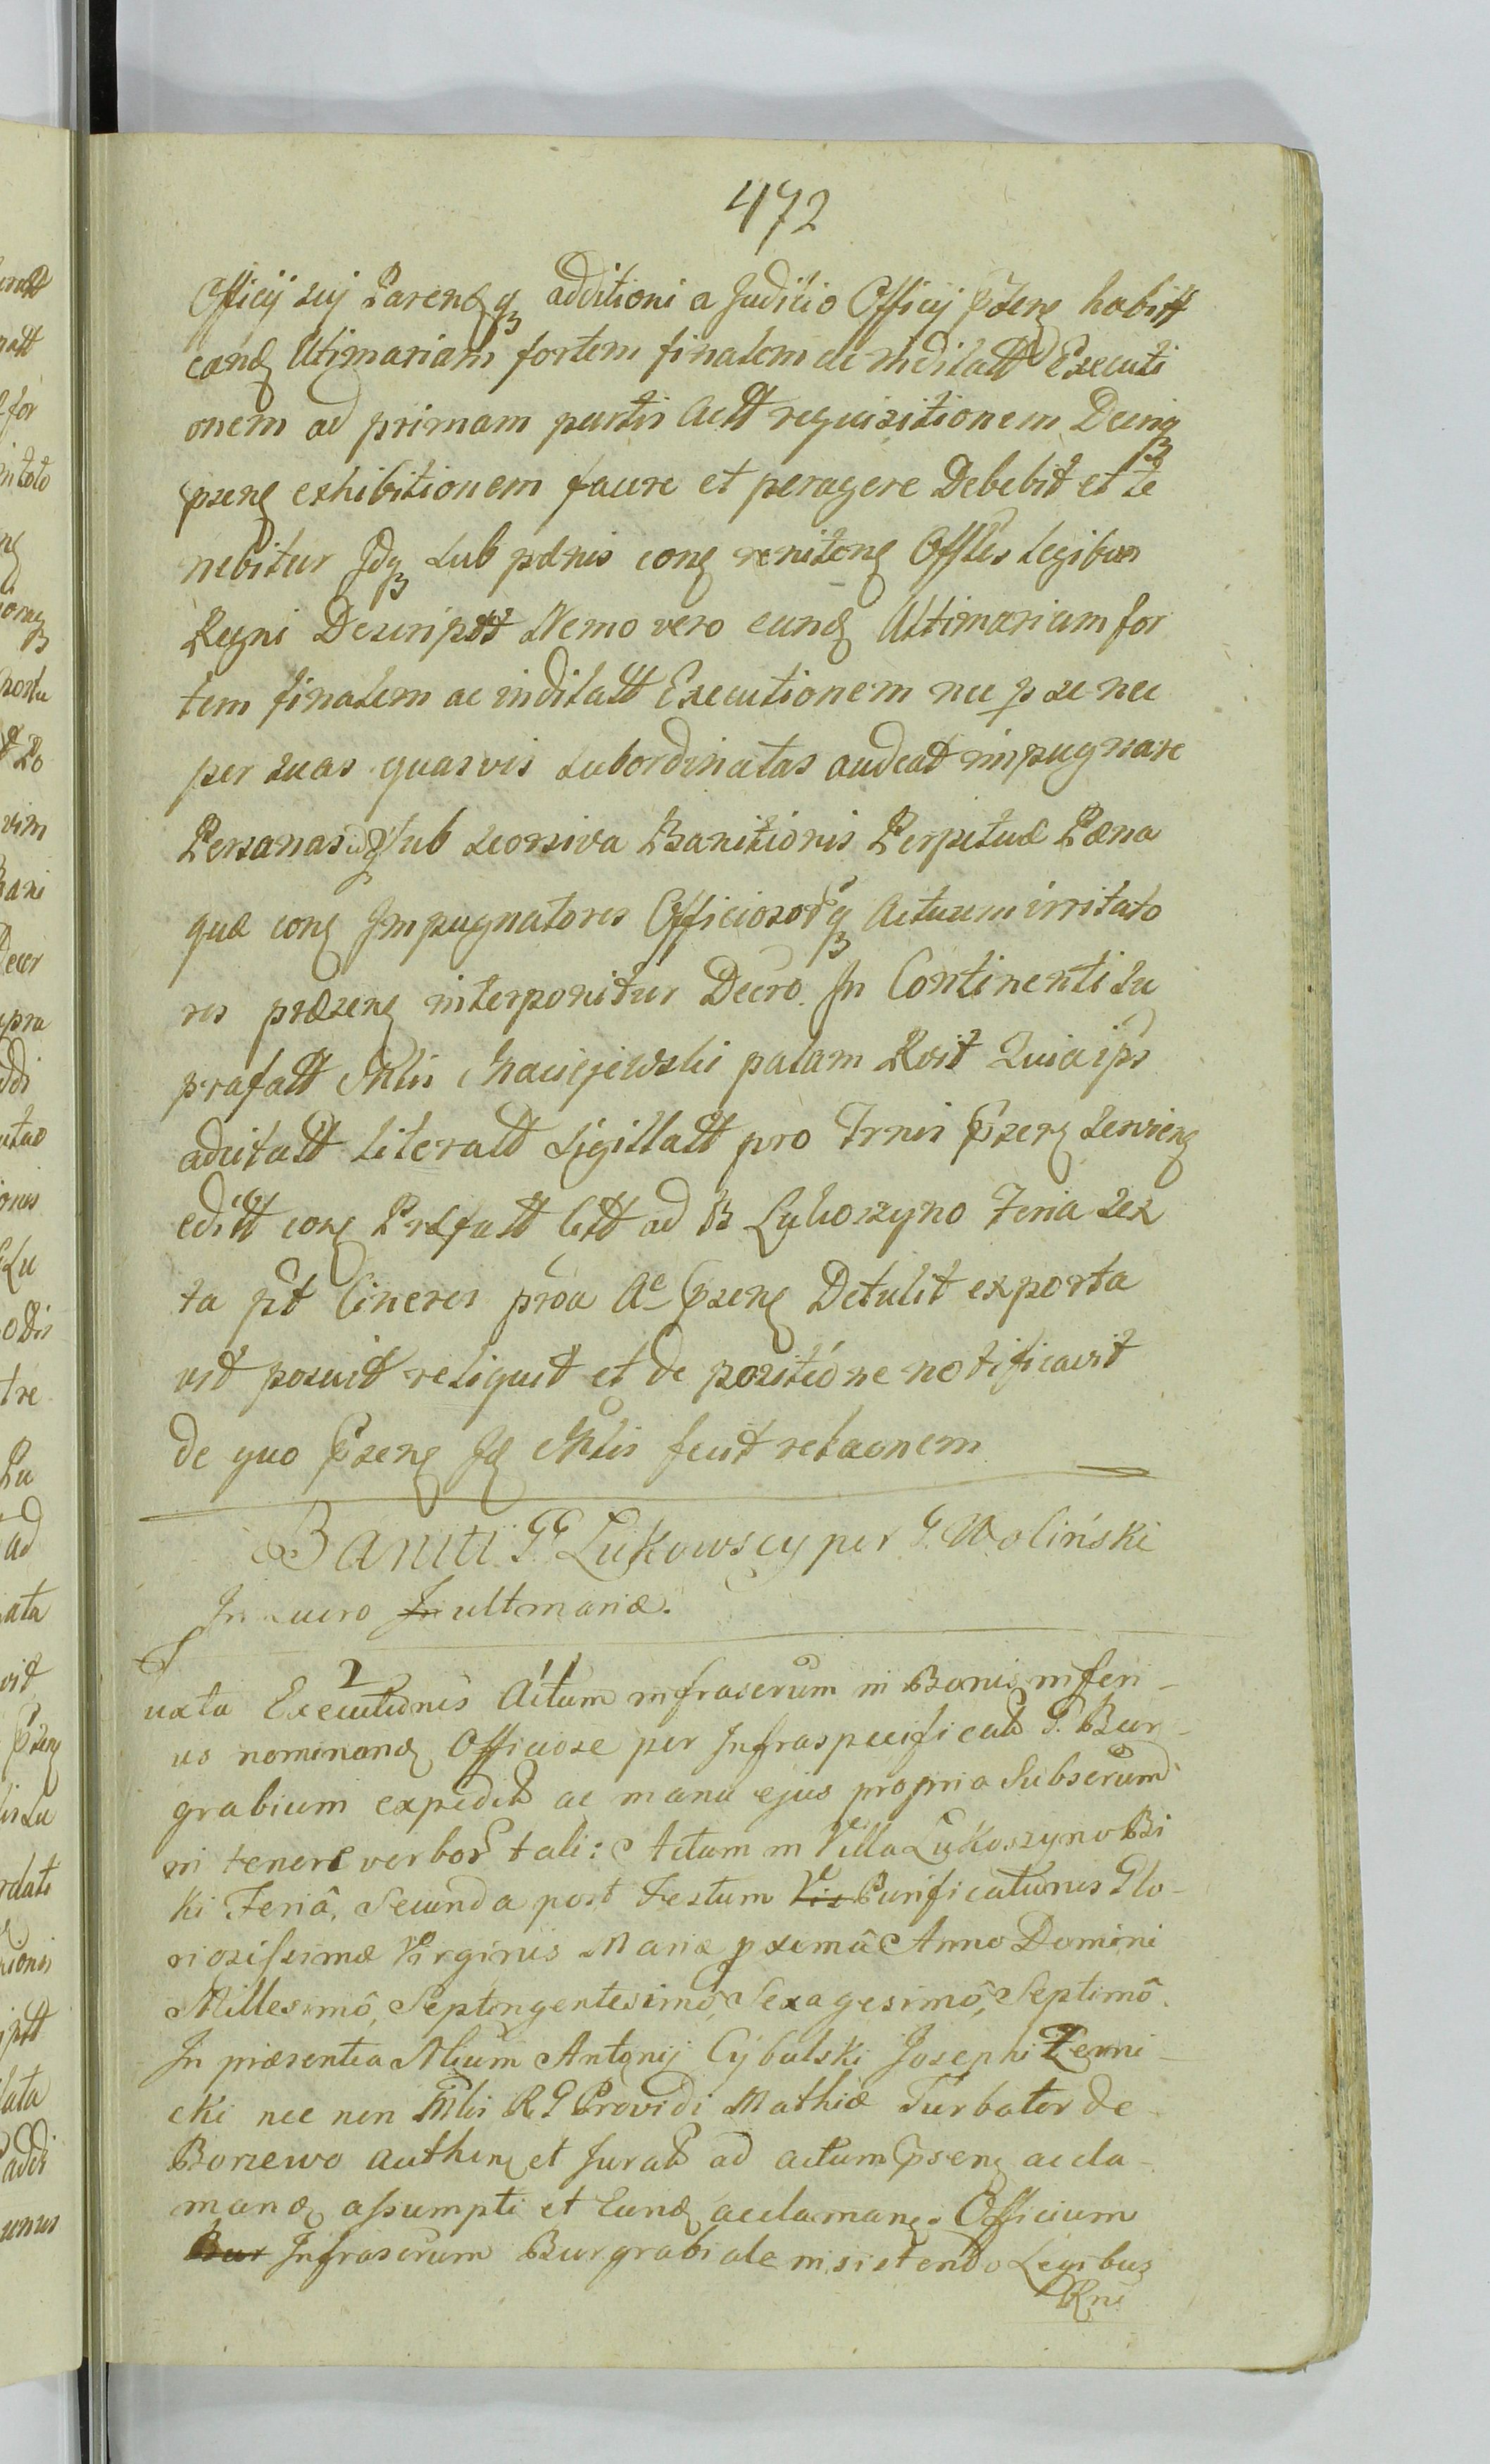 472
Officij sui Parendq3 additioni a Judicio Officij Psens habitt
eand Ultimariam fortem finalem ac indilatt Executi
onem ad primam partis Actt requisitionem Decriq3
psens exhibitionem facere et peragere Debebit et te
nebitur Idq3 sub pænis cont renitent Offles Legibus
Regni Descriptt Nemo vero eand Ultimariam for
tem finalem ac indilatt Executionem nec p se nec
per suas quasvis subordinatas audeat impugnare
Personas idq3 sub seorsiva Banitionis Perpetuæ Pæna
quæ cont Impugnatores Officiosorq3 Actuum irritato
res præsent interponitur Decro. In Continenti Su
prafatt Mlis Maciejewski palam Roit Quia ips
adcitatt literatt sigillatt pro Trnis Psens servient
editt cont Præfatt Citt ad B Lukoszyno Feria sex
ta pt Cineres proa Ac Psens Detulit exporta
vit posuit reliquit et de positione notificavit
de quo Psens Id Mlis fecit relaonem
Baniti GG Lukowscy per G. Woliński
In Lucro In ultmariæ.
Juxta Executionis Actum infrascrum in Bonis inferi-
us nominand Officiose per Infraspecificatt G. Bur-
grabium expeditt ac manu ejus propria Subscrum
in tenore verbor tali: Actum in Villa Lukoszyno Bi
ki Feriâ, Secunda post Festum Vis Purificationis Glo-
riosissimæ Virginis Mariæ pxemâ Anno Domini
Millesimô, Septingentesimô, Sexagesimô, Septimô.
In præsentia Nlium Antonij Cybulski Josephi Zerni-
cki nec non Mlis R G Providi Mathiæ Turbator de
Borzewo authent et Juratt ad actum Psens accla-
mand assumpti et Eund acclamant. Officium
Bur Infrascrum Burgrabiale insistendo Legibus
Rni